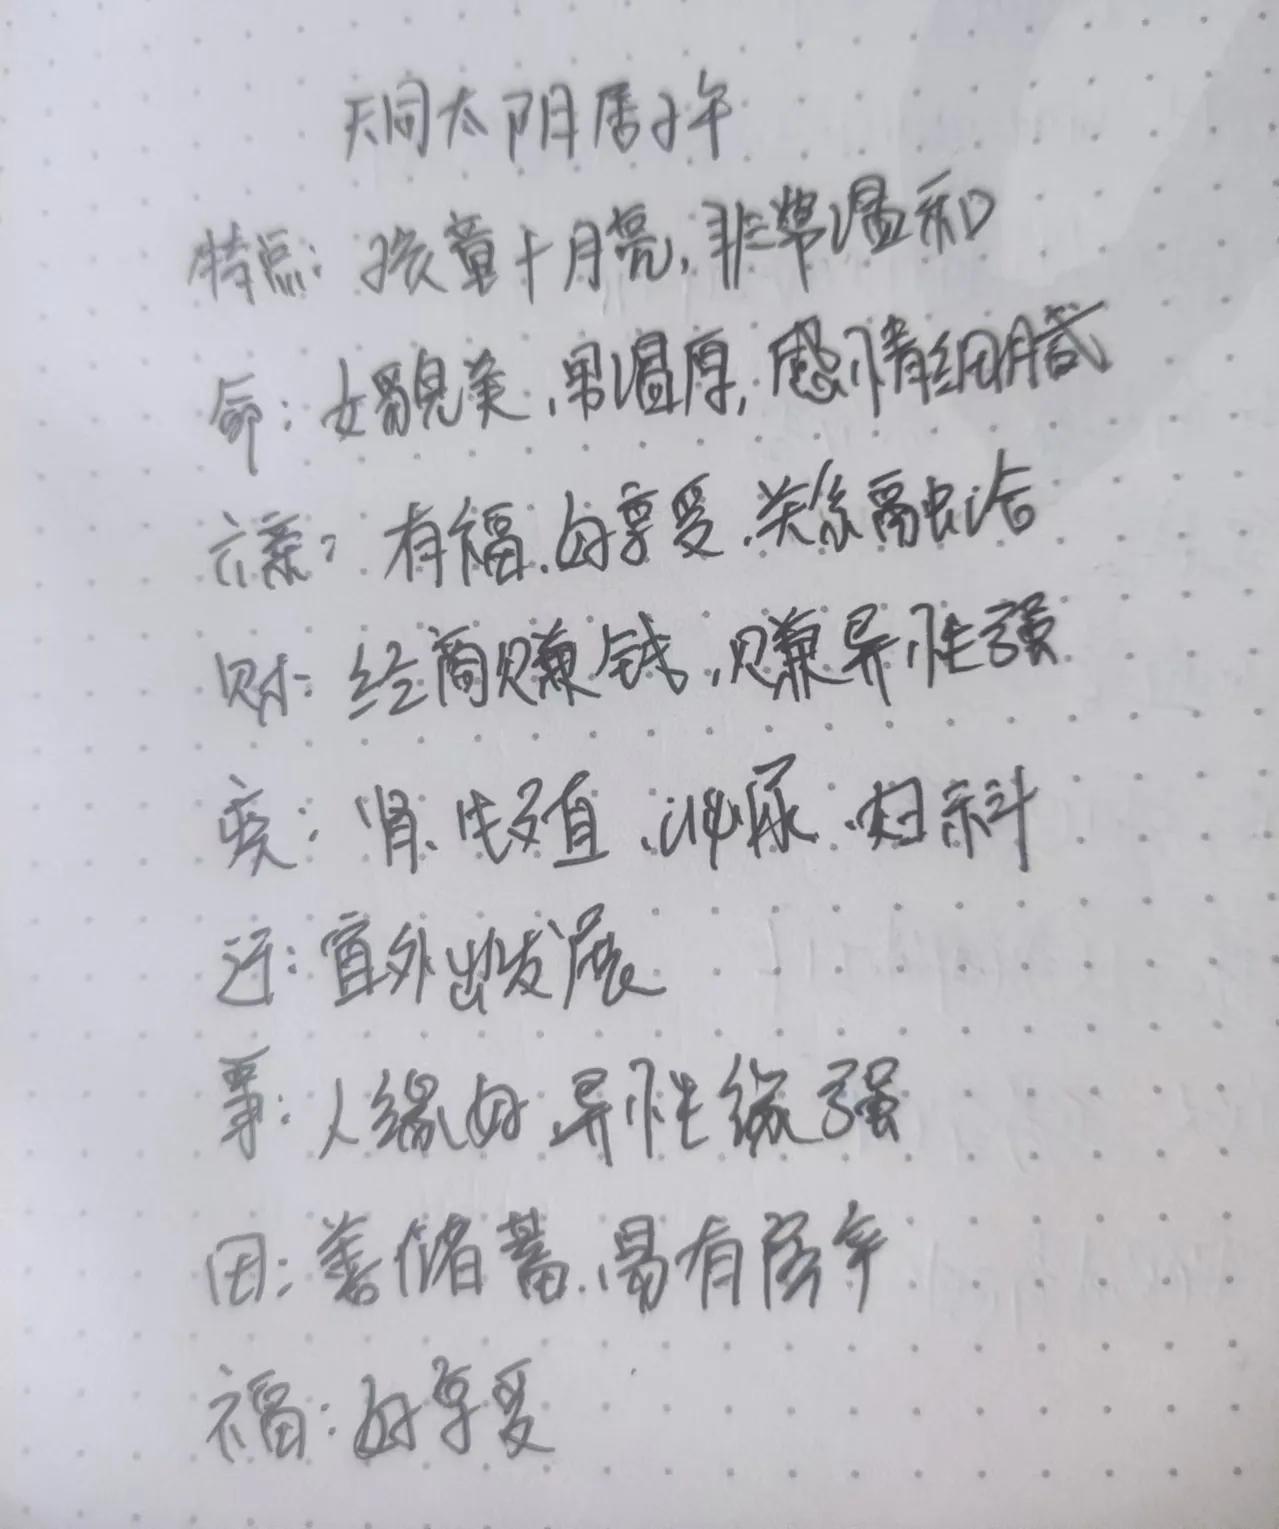 天同太阴居子午
特点：孩童十月亮，非常温和
命：女貌美、男温厚，感情细腻
六亲：有福、好享受、关系融洽
财：经商赚钱、赚异性强
疾：肾、生殖、泌尿、妇科
迁：宜外出发展
事：人缘好、异性缘强
田：善储蓄、易有房车
福：好享受